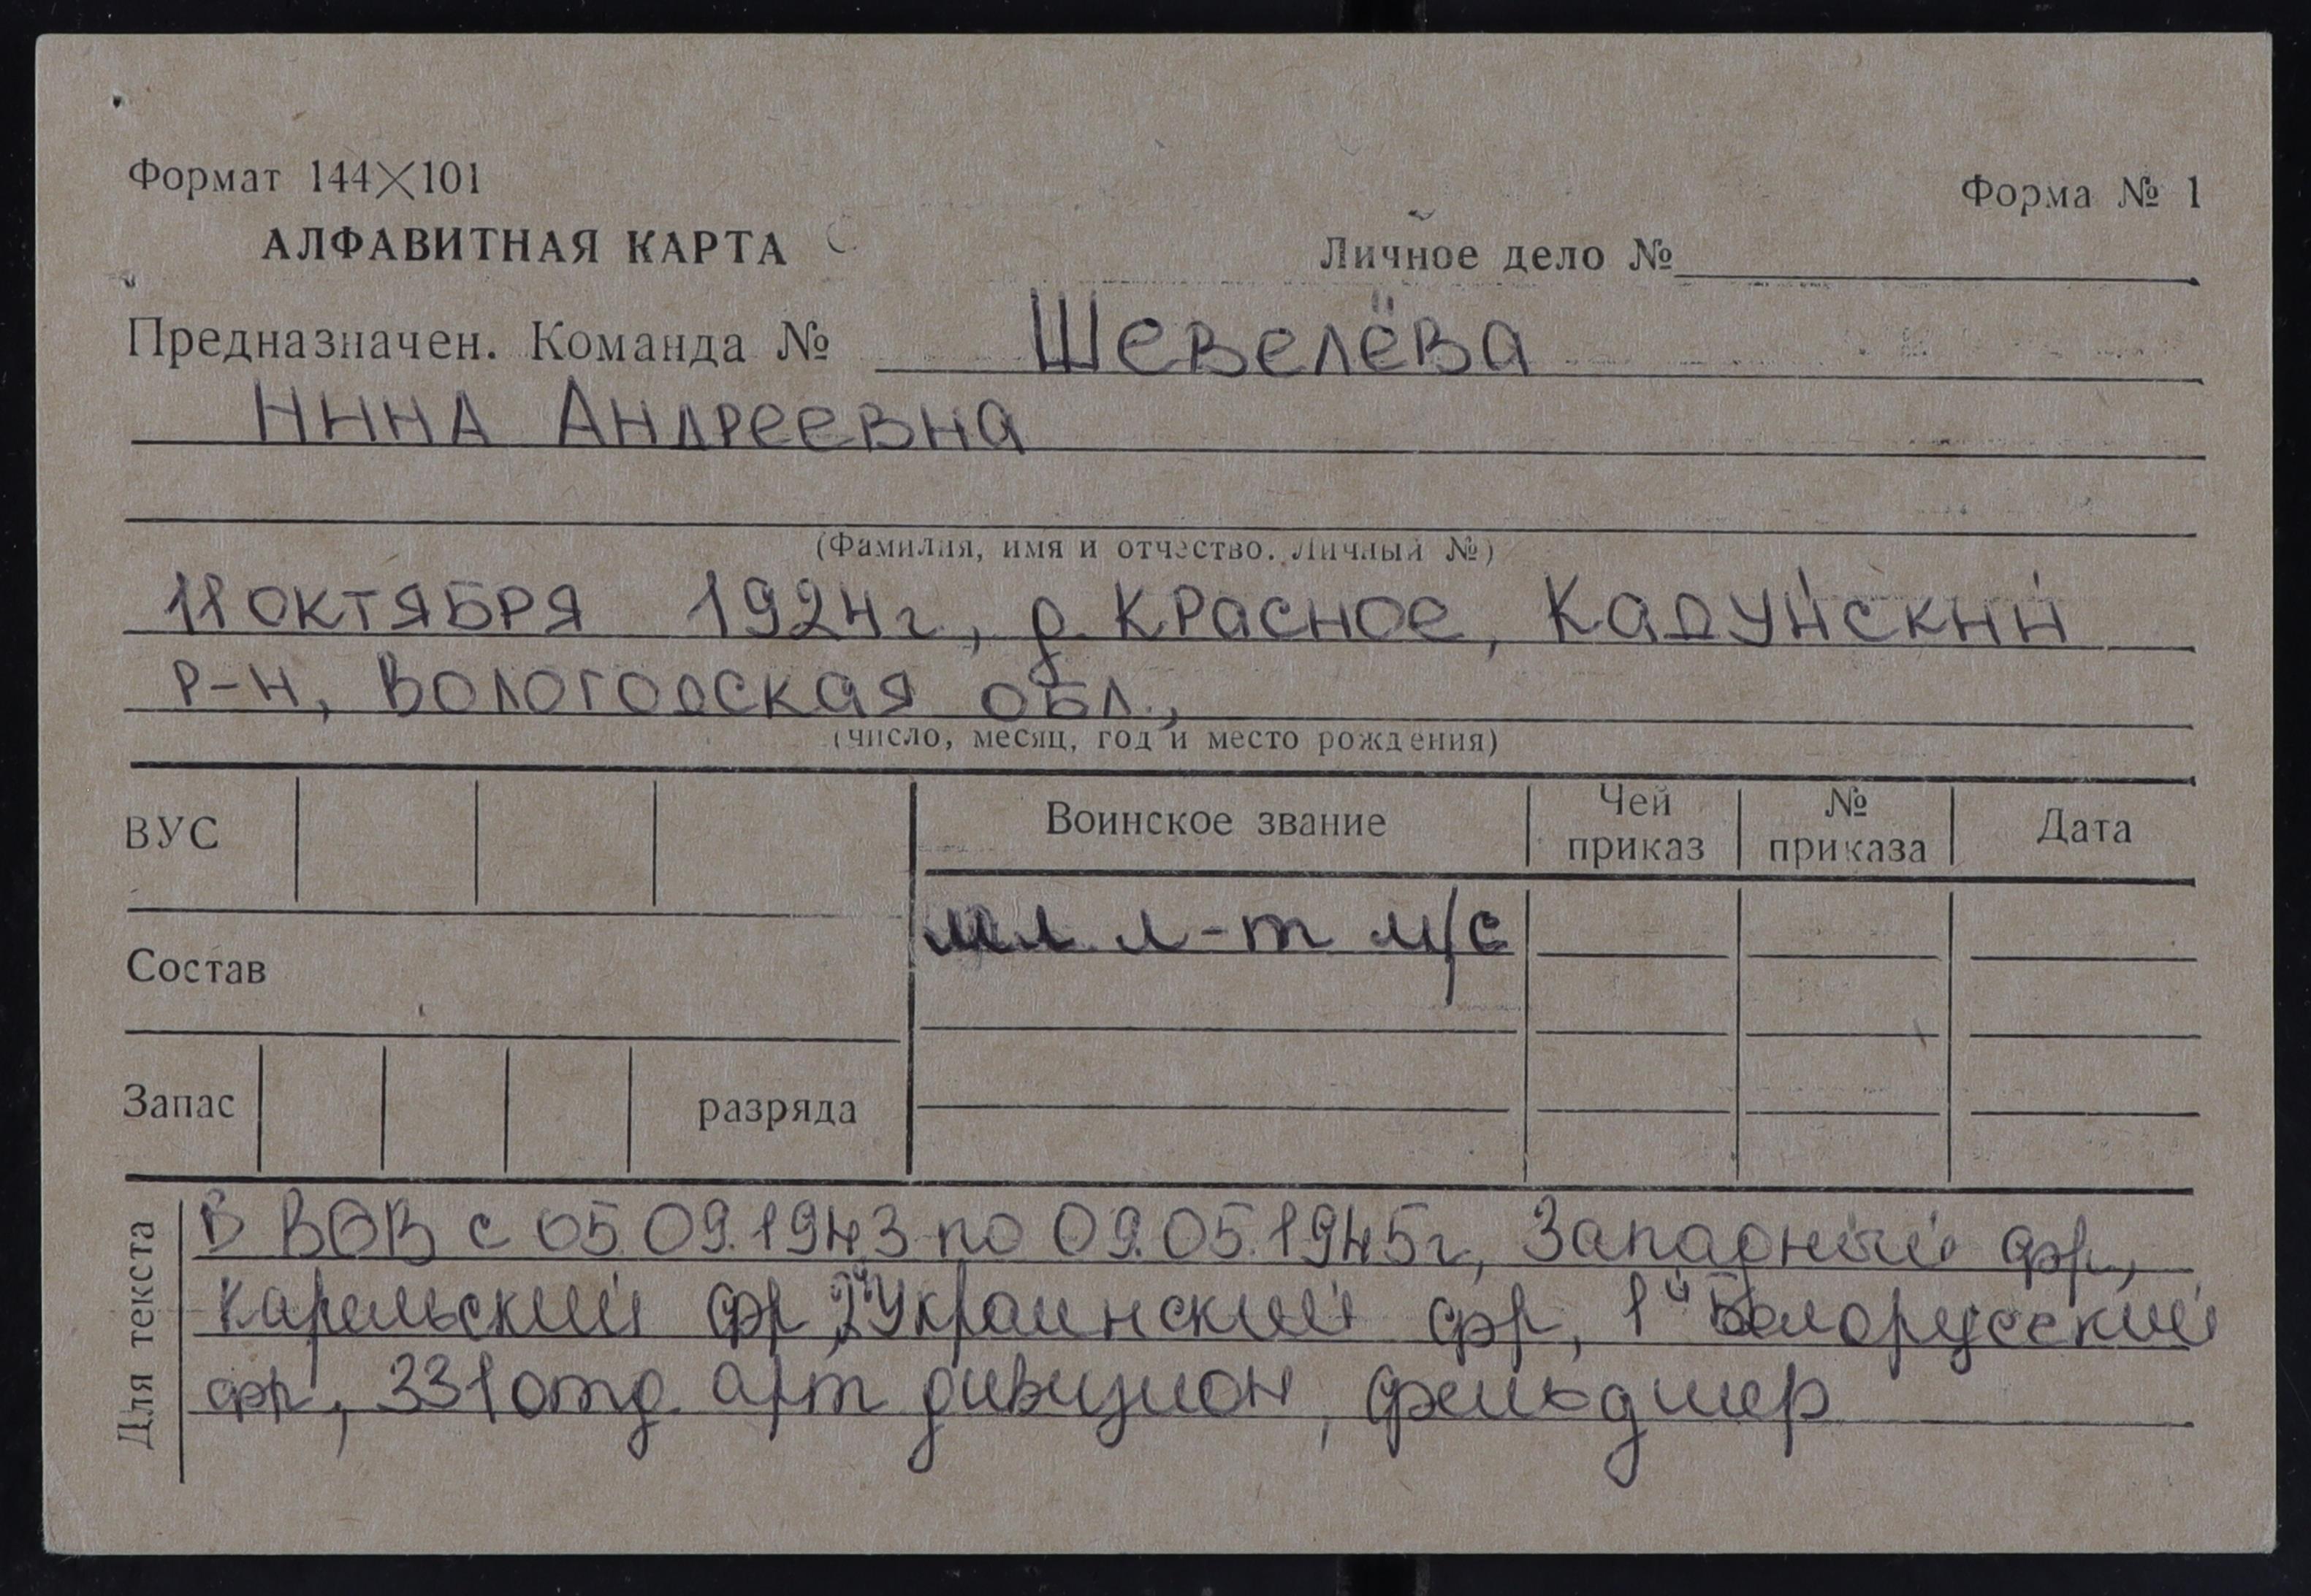 Формат 144×101
Форма № 1
АЛФАВИТНАЯ КАРТА
Личное дело №
Предназначен. Команда № Шевелёва
Нина Андреевна
(Фамилия, имя и отчество. Личный №)
11 октября 1924г, д. Красное, Кадуйский
р-н, Вологодская обл.,
(число, месяц, год и место рождения)
ВУС
Воинское звание
Чей приказ
№ приказа
Дата
мл л-т м/с
Состав
Запас
разряда
Для текста
В ВОВ с 05.09.1943 по 09.05.1945г, Западный фр,
Карельский фр, 2й Украинский фр, 1й Белорусский
фр, 331 отд. арт дивизион, фельдшер